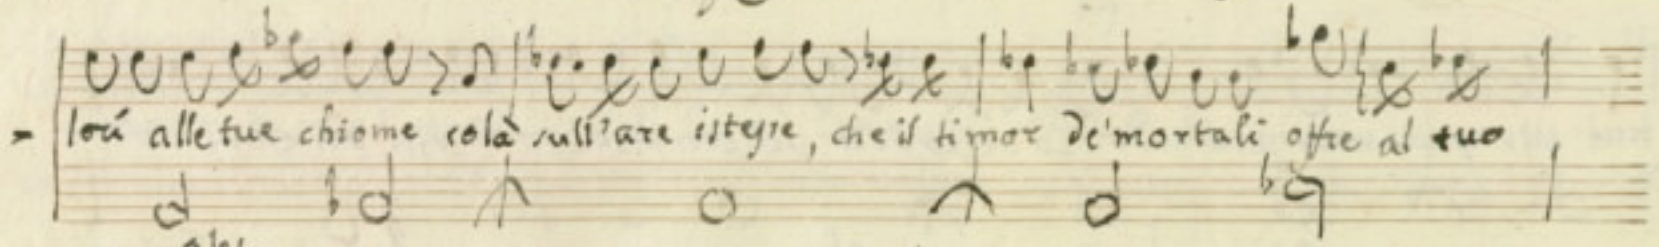 lorí alle tue chiome colà sull'are istesse, che il timor de' mortali offre al tuo